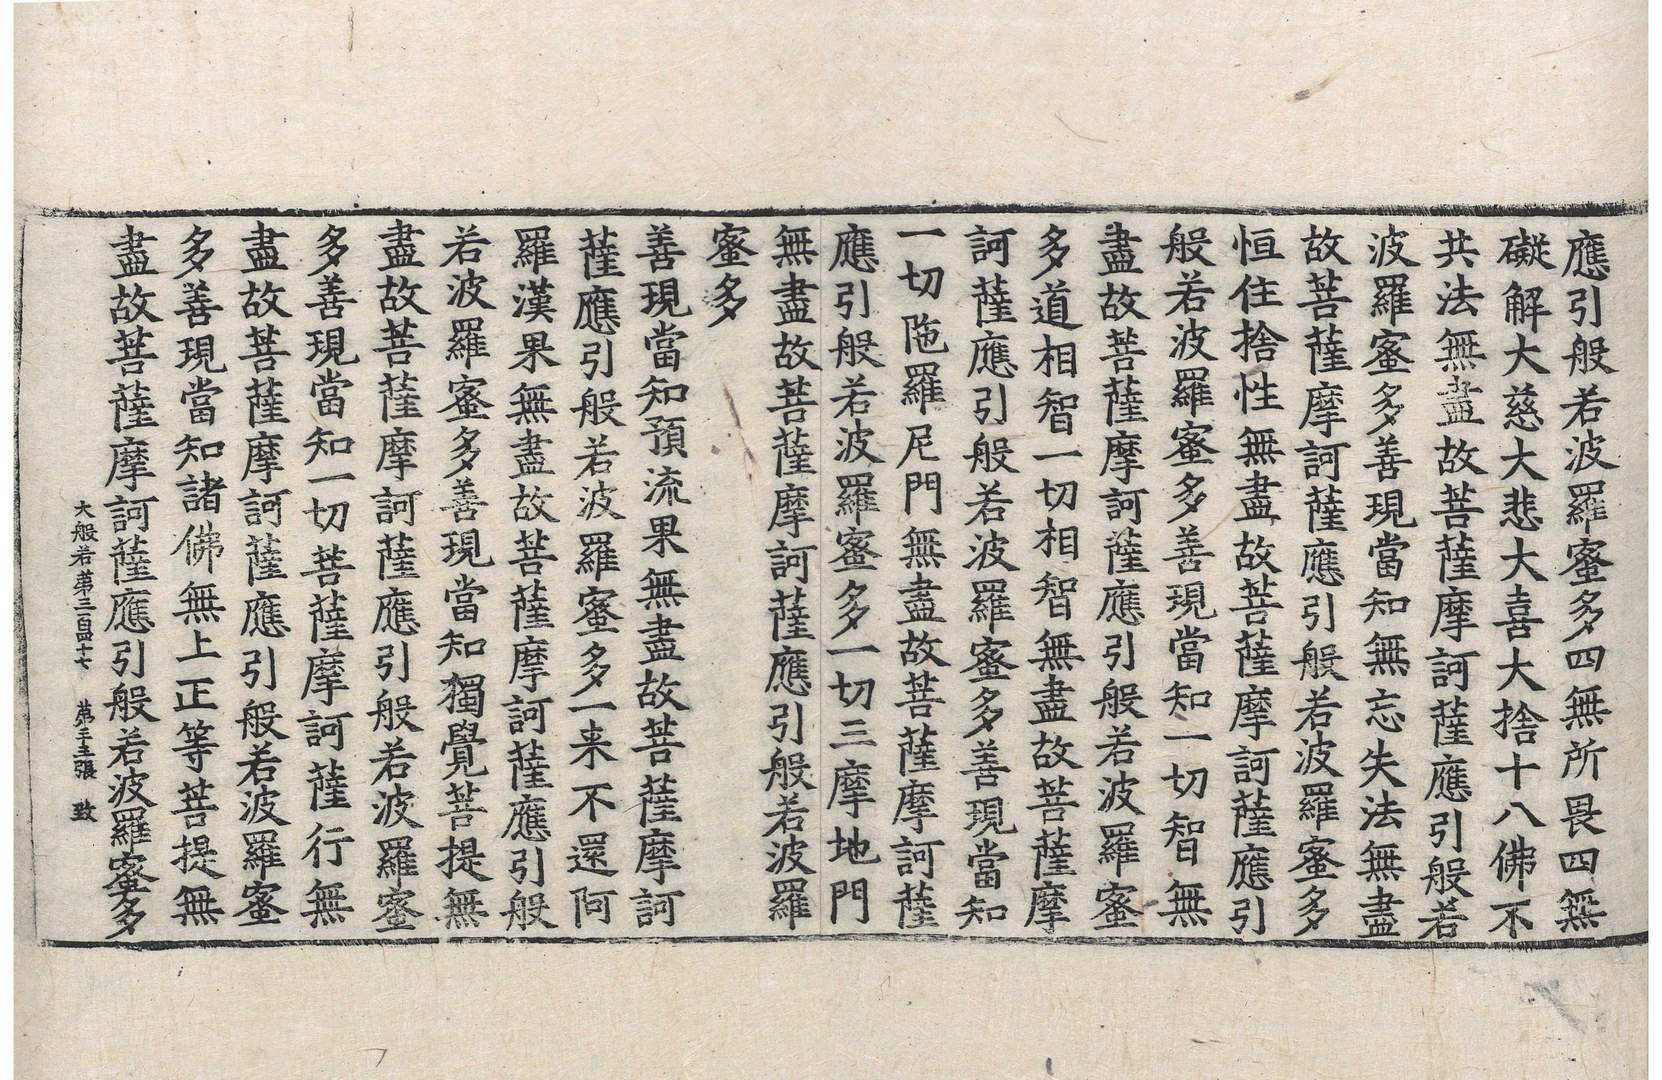 應引般若波羅蜜多四無所畏四無
礙解大慈大悲大喜大捨十八佛不
共法無盡故菩薩摩訶薩應引般若
波羅蜜多善現當知無忘失法無盡
故菩薩摩訶薩應引般若波羅蜜多
恒住捨性無盡故菩薩摩訶薩應引
般若波羅蜜多善現當知一切智無
盡故菩薩摩訶薩應引般若波羅蜜
多道相智一切相智無盡故菩薩摩
訶薩應引般若波羅蜜多善現當知
一切陁羅尼門無盡故菩薩摩訶薩
應引般若波羅蜜多一切三摩地門
無盡故菩薩摩訶薩應引般若波羅
蜜多
善現當知預流果無盡故菩薩摩訶
薩應引般若波羅蜜多一来不還阿
羅漢果無盡故菩薩摩訶薩應引般
若波羅蜜多善現當知獨覺菩提無
盡故菩薩摩訶薩應引般若波羅蜜
多善現當知一切菩薩摩訶薩行無
盡故菩薩摩訶薩應引般若波羅蜜
多善現當知諸佛無上正等菩提無
盡故菩薩摩訶薩應引般若波羅蜜多
大般若第三百四十七 第二十五張 致